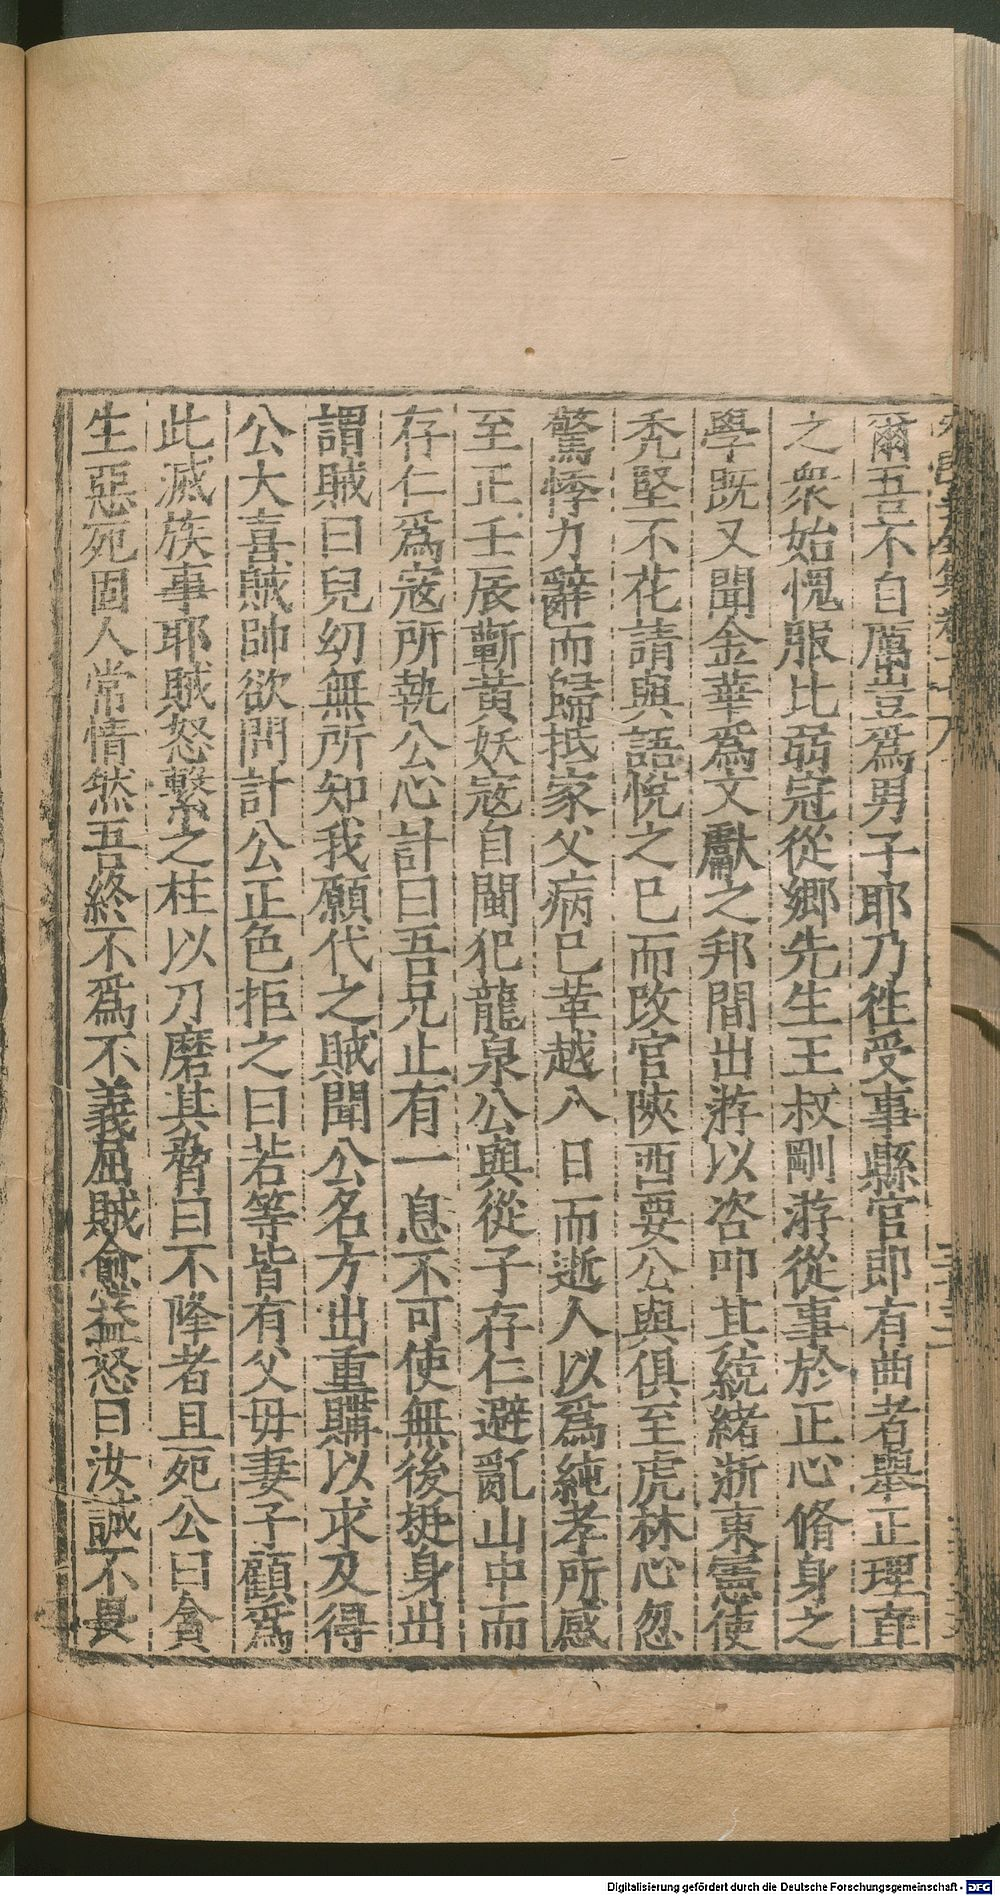 爾吾不自厲豈爲男子耶乃徃受事縣官即有曲者舉正理直
之衆始愧服比弱冠從鄉先生王叔剛游從事於正心脩身之
學既又聞金華爲文獻之邦間出游以咨叩其統緒浙東憲使
禿堅不花請與語悅之已而改官陝西要公與俱至虎林心忽
驚悸力辭而歸抵家父病已革越八日而逝人以爲純孝所感
至正壬辰蘄黄妖寇自閩犯龍泉公與從子存仁避亂山中而
存仁爲寇所執公心計曰吾兄止有一息不可使無後挺身出
謂賊曰兒幼無所知我願代之賊聞公名方出重購以求及得
公大喜賊帥欲問計公正色拒之曰若等皆有父毋妻子顧爲
此滅族事耶賊怒繫之柱以刀磨其脅曰不降者且死公曰貪
生惡死固人常情然吾終不爲不義屈賊愈益怒曰汝誠不畏
Digitalisierung gefördert durch die Deutsche Forschungsgemeinschaft - DFG